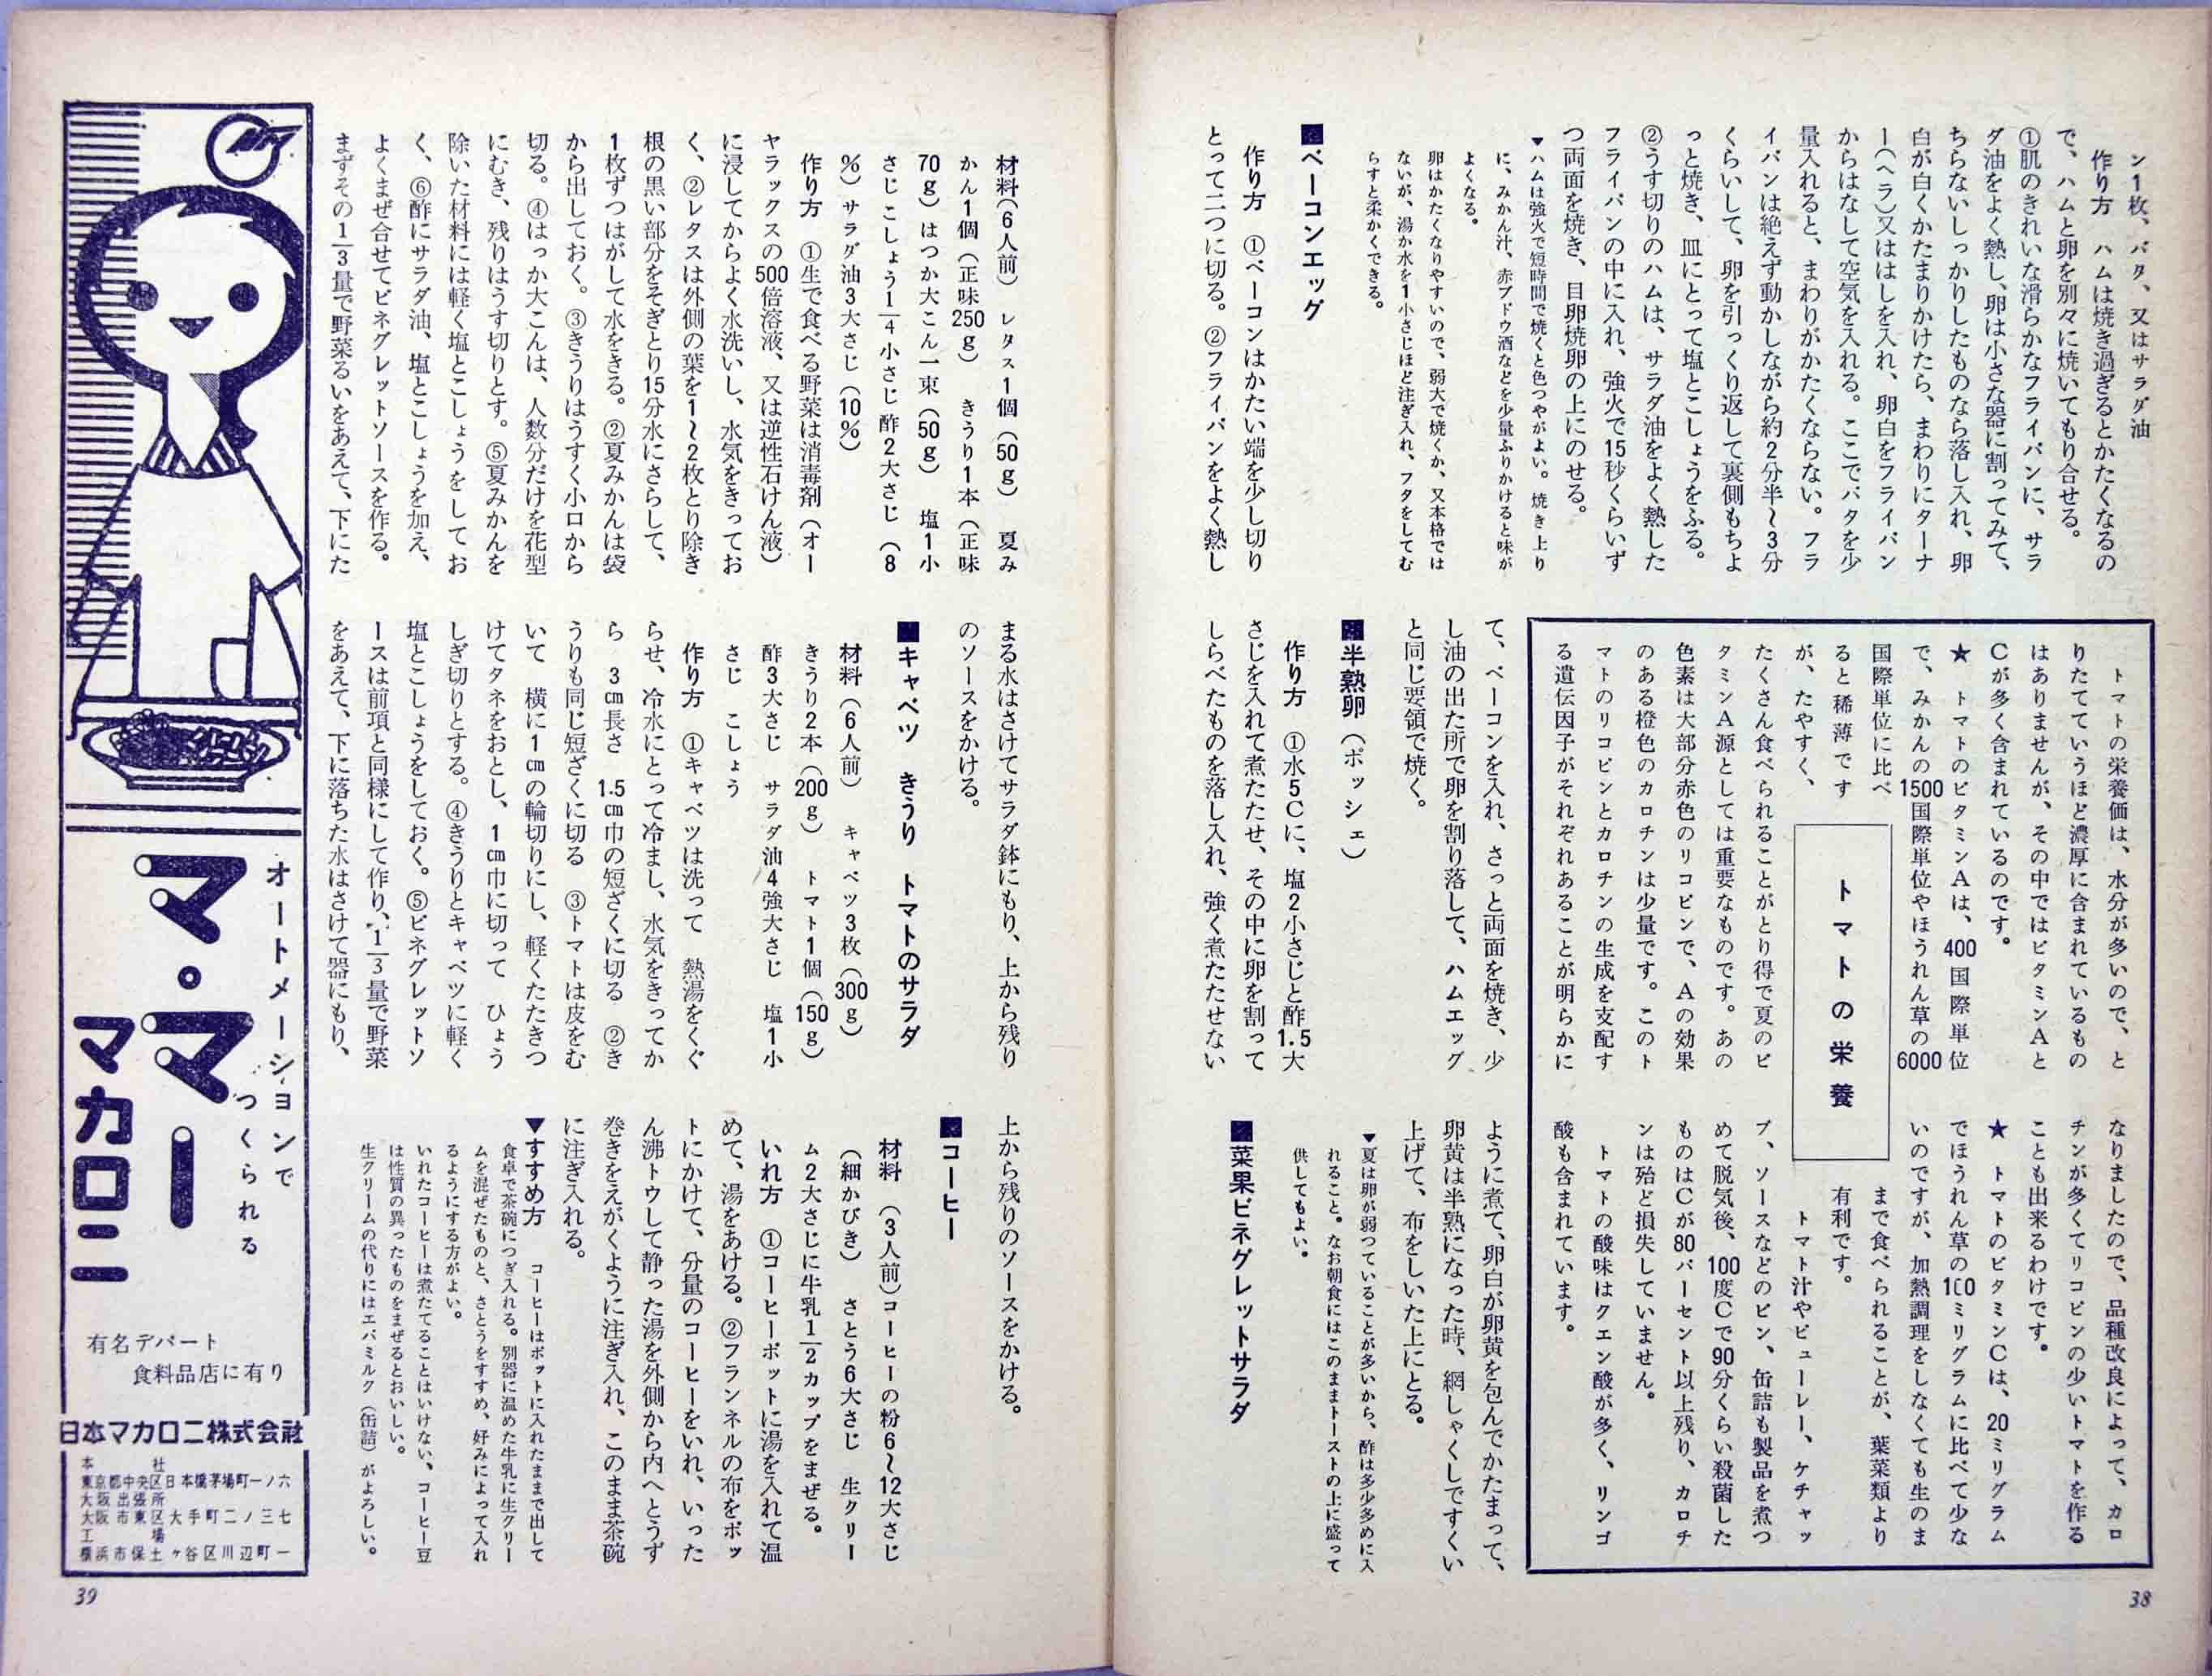 ン1枚、バタ、又はサラダ油
作り方　ハムは焼き過ぎるとかたくなるの
で、ハムと卵を別々に焼いてもり合せる。
①肌のきれいな滑らかなフライパンに、サラ
ダ油をよく熱し、卵は小さな器に割ってみて、
ちらないしっかりしたものなら落し入れ、卵
白が白くかたまりかけたら、まわりにターナ
ー(ヘラ)又ははしを入れ、卵白をフライパン
からはなして空気を入れる。ここでバタを少
量入れると、まわりがかたくならない。フラ
イパンは絶えず動かしながら約2分半〜3分
くらいして、卵を引っくり返して裏側もちよ
っと焼き、皿にとって塩とこしょうをふる。
②うす切りのハムは、サラダ油をよく熱した
フライパンの中に入れ、強火で15秒くらいず
つ両面を焼き、目卵焼卵の上にのせる。
▼ハムは強火で短時間で焼くと色つやがよい。焼き上り
に、みかん汁、赤ブドウ酒などを少量ふりかけると味が
よくなる。
卵はかたくなりやすいので、弱大で焼くか、又本格では
ないが、湯か水を1小さじほど注ぎ入れ、フタをしてむ
らすと柔かくできる。
■ベーコンエッグ
作り方　①ベーコンはかたい端を少し切り
とって二つに切る。②フライパンをよく熱し
て、ベーコンを入れ、さっと両面を焼き、少
し油の出た所で卵を割り落して、ハムエッグ
と同じ要領で焼く。
■半熟卵（ポッシェ）
作り方　①水5Cに、塩2小さじと酢1.5大
さじを入れて煮たたせ、その中に卵を割って
しらべたものを落し入れ、強く煮たたせない
ように煮て、卵白が卵黄を包んでかたまって、
卵黄は半熟になった時、網しゃくしですくい
上げて、布をしいた上にとる。
▼夏は卵が弱つていることが多いから、酢は多少多めに入
れること。なお朝食にはこのままトーストの上に盛って
供してもよい。
■菜果ビネグレットサラダ
トマトの栄養
トマトの栄養価は、水分が多いので、と
りたてていうほど濃厚に含まれているもの
はありませんが、その中ではビタミンAと
Cが多く含まれているのです。
★　トマトのビタミンAは、400国際単位
で、みかんの1500国際単位やほうれん草の6000
国際単位に比べ
ると稀薄です
が、たやすく、
たくさん食べられることがとり得で夏のビ
タミンA源としては重要なものです。あの
色素は大部分赤色のリコピンで、Aの効果
のある橙色のカロチンは少量です。このト
マトのリコピンとカロチンの生成を支配す
る遺伝因子がそれぞれあることが明らかに
なりましたので、品種改良によって、カロ
チンが多くてリコピンの少いトマトを作る
ことも出来るわけです。
★　トマトのビタミンCは、20ミリグラム
でほうれん草の100ミリグラムに比べて少な
いのですが、加熱調理をしなくても生のま
まで食べられることが、葉菜類より
有利です。
トマト汁やピューレー、ケチャッ
プ、ソースなどのビン、缶詰も製品を煮つ
めて脱気後、100度Cで90分くらい殺菌した
ものはCが80パーセント以上残り、カロチ
ンは殆ど損失していません。
トマトの酸味はクエン酸が多く、リンゴ
酸も含まれています。
38
材料(6人前)　レタス1個（50g）　夏み
かん1個（正味250g）　きうり1本（正味
70g）はつか大こん一束（50g）　塩1小
さじ こしょう1/4小さじ 酢2大さじ（8
%）サラダ油3大さじ（10%）
作り方　①生で食べる野菜は消毒剤（オー
ヤラックスの500倍溶液、又は逆性石けん液）
に浸してからよく水洗いし、水気をきってお
く、②レタスは外側の葉を1〜2枚とり除き
根の黒い部分をそぎとり15分水にさらして、
1枚ずつはがして水をきる。②夏みかんは袋
から出しておく。③きうりはうすく小口から
切る。④はっか大こんは、人数分だけを花型
にむき、残りはうす切りとす。⑤夏みかんを
除いた材料には軽く塩とこしょうをしてお
く、⑥酢にサラダ油、塩とこしょうを加え、
よくまぜ合せてビネグレットソースを作る。
まずその1/3量で野菜るいをあえて、下にた
まる水はさけてサラダ鉢にもり、上から残り
のソースをかける。
■キャベツ　きうり　トマトのサラダ
材料（6人前）　キャベツ3枚（300g）
きうり2本（200g）　トマト1個（150g）
酢3大さじ　サラダ油4強大さじ　塩1小
さじ　こしょう
作り方　①キャベツは洗って　熱湯をくぐ
らせ、冷水にとって冷まし、水気をきってか
ら　3cm長さ　1.5cm巾の短ざくに切る　②き
うりも同じ短ざくに切る　③トマトは皮をむ
いて　横に1cmの輪切りにし、軽くたたきつ
けてタネをおとし、1cm巾に切って　ひょう
しぎ切りとする。④きうりとキャベツに軽く
塩とこしょうをしておく。⑤ビネグレットソ
ースは前項と同様にして作り、1/3量で野菜
をあえて、下に落ちた水はさけて器にもり、
上から残りのソースをかける。
■コーヒー
材料　（3人前)コーヒーの粉6〜12大さじ
（細かびき）　さとう6大さじ　生クリー
ム2大さじに牛乳1/2カップをまぜる。
いれ方　①コーヒーポットに湯を入れて温
めて、湯をあける。②フランネルの布をポッ
トにかけて、分量のコーヒーをいれ、いった
ん沸トウして静った湯を外側から内へとうず
巻きをえがくように注ぎ入れ、このまま茶碗
に注ぎ入れる。
▼すすめ方　コーヒーはポットに入れたままで出して
食卓で茶碗につぎ入れる。別器に温めた牛乳に生クリー
ムを混ぜたものと、さとうをすすめ、好みによって入れ
るようにする方がよい。
いれたコーヒーは煮たてることはいけない、コーヒー豆
は性質の異ったものをまぜるとおいしい。
生クリームの代りにはエバミルク（缶詰）がよろしい。
オートメーションで
つくられる
マ・マー
マカロニ
有名デパート
食料品店に有り
日本マカロニ株式会社
本社
東京都中央区日本橋茅場町一ノ六
大阪出張所
大阪市東区大手町二ノ三七
工場
横浜市保土ヶ谷区川辺町一
39